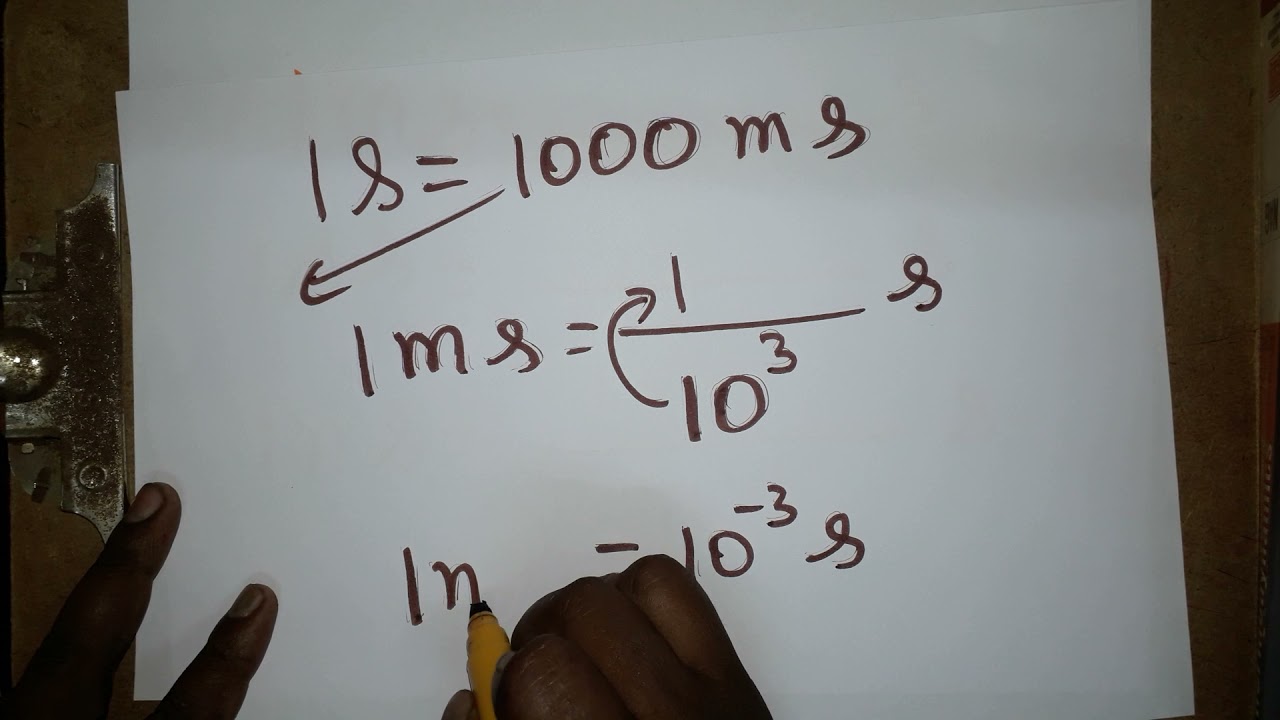 1 s = 1000 m s
1 m s = 1/10³ s
1 n = 10⁻³ s